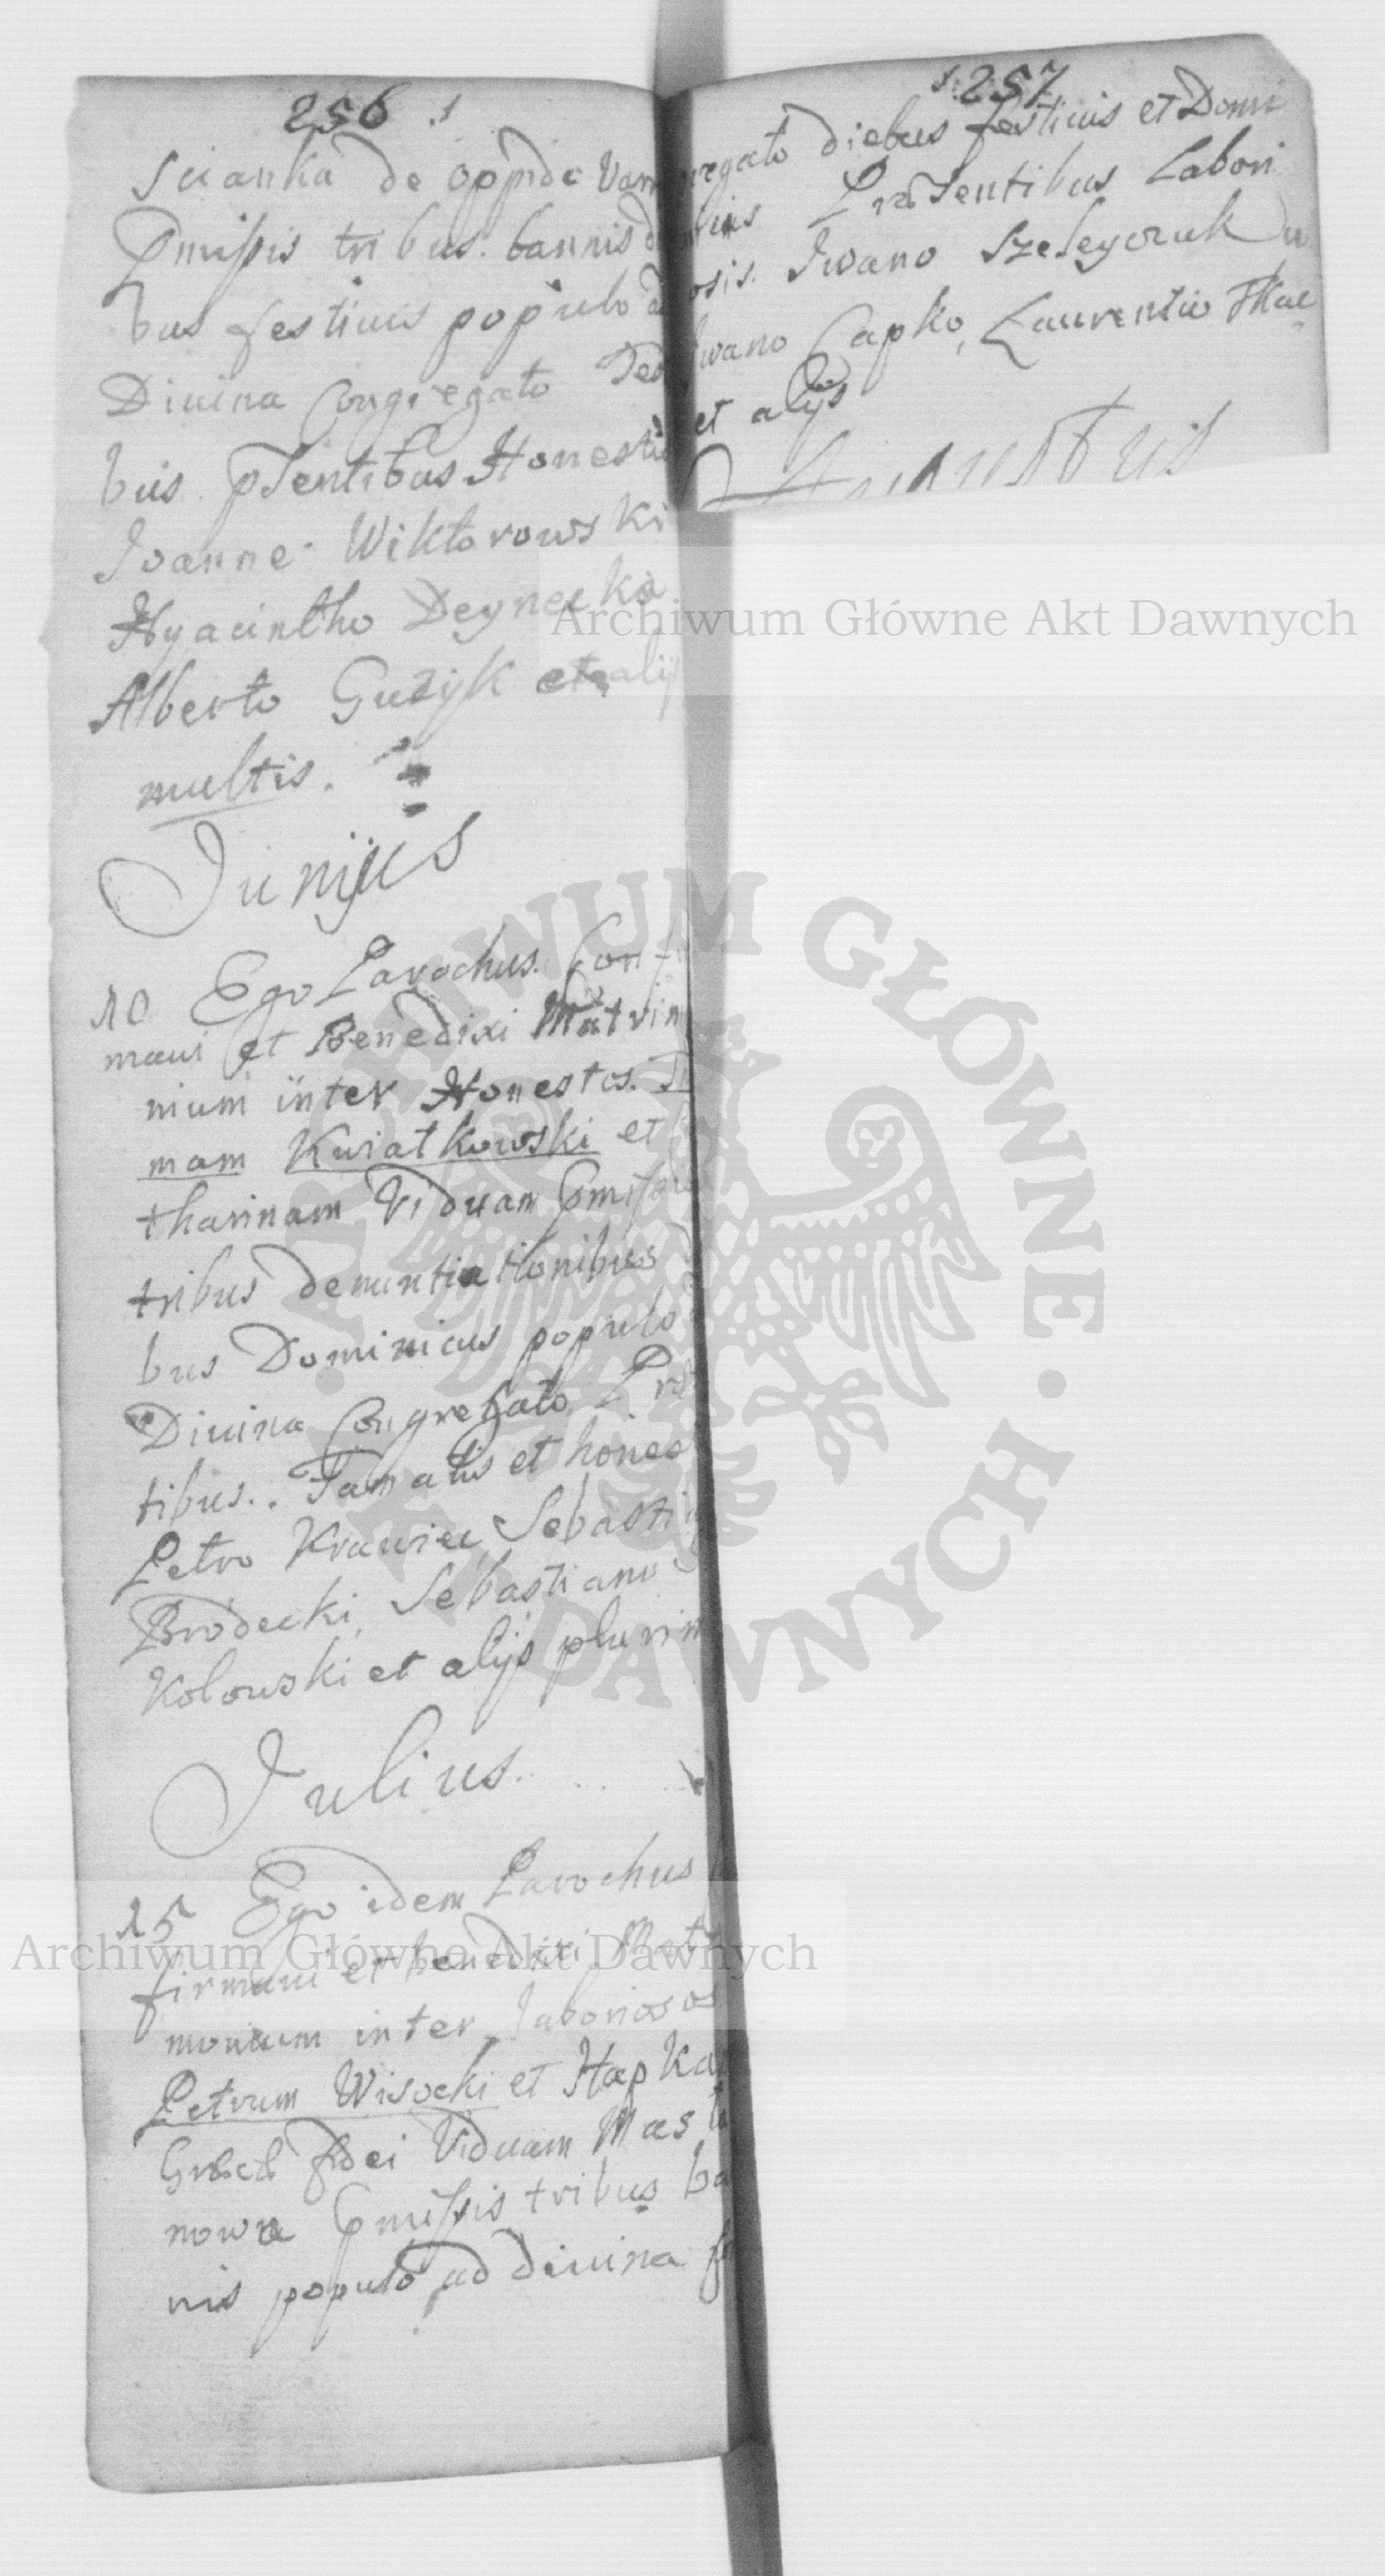 256
Scianka de oppido
Pmissis tribus bannis
bus festiuis populo
Diuina Congregato
bus pSentibus Honestis
Joanne Wiktorowski
Hyacintho Deynecka
Alberto Guzyk et alijs
multis.
Junijus
10 Ego Parochus Con
maui et Benedixi Matrim
nium inter Honestos
mam Kwiatkowski et
tharinam Viduam Pmissis
tribus denuntiationibus
bus Dominicus populo
Diuina Congregato
tibus Famatis et hones
Petro Krawiec Sebasti
Brodecki, Sebastiano
Kolowski et alijs plurim
Julius.
15 Ego idem Parochus
firmaui et benedixi Mat
monium inter laboriosos
Petrum Wisocki et Hapka
fidei Viduam Mas
nowa Pmissis tribus ba
nis populo ad diuina
257
gregato diebus festiuis et Domi
Praesentibus Labori
osis. Iwano
Iwano Capko, Laurentio Tkac
et alijs
Augustus
Archiwum Główne Akt Dawnych
ARCHIWUM GŁÓWNE · AKT DAWNYCH ·
Archiwum Główne Akt Dawnych